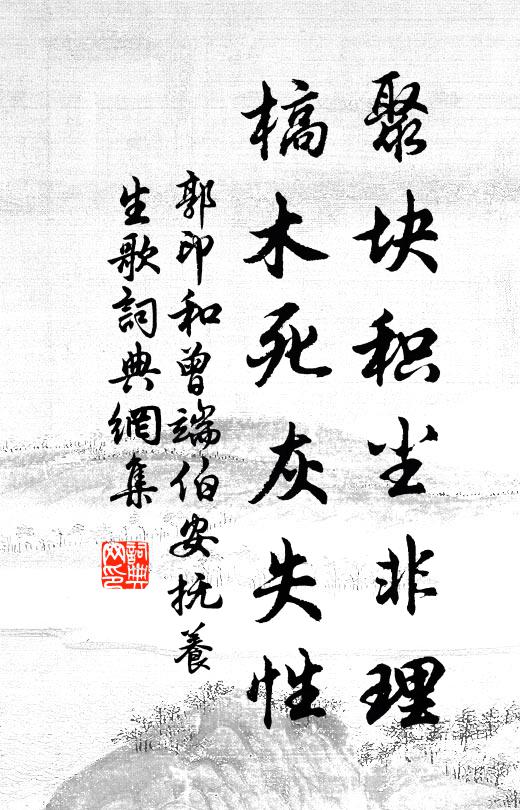 聚块积尘非理
槁木死灰失性
郭印和曾端伯安抚养
生歌詞典網集
詞典
网印